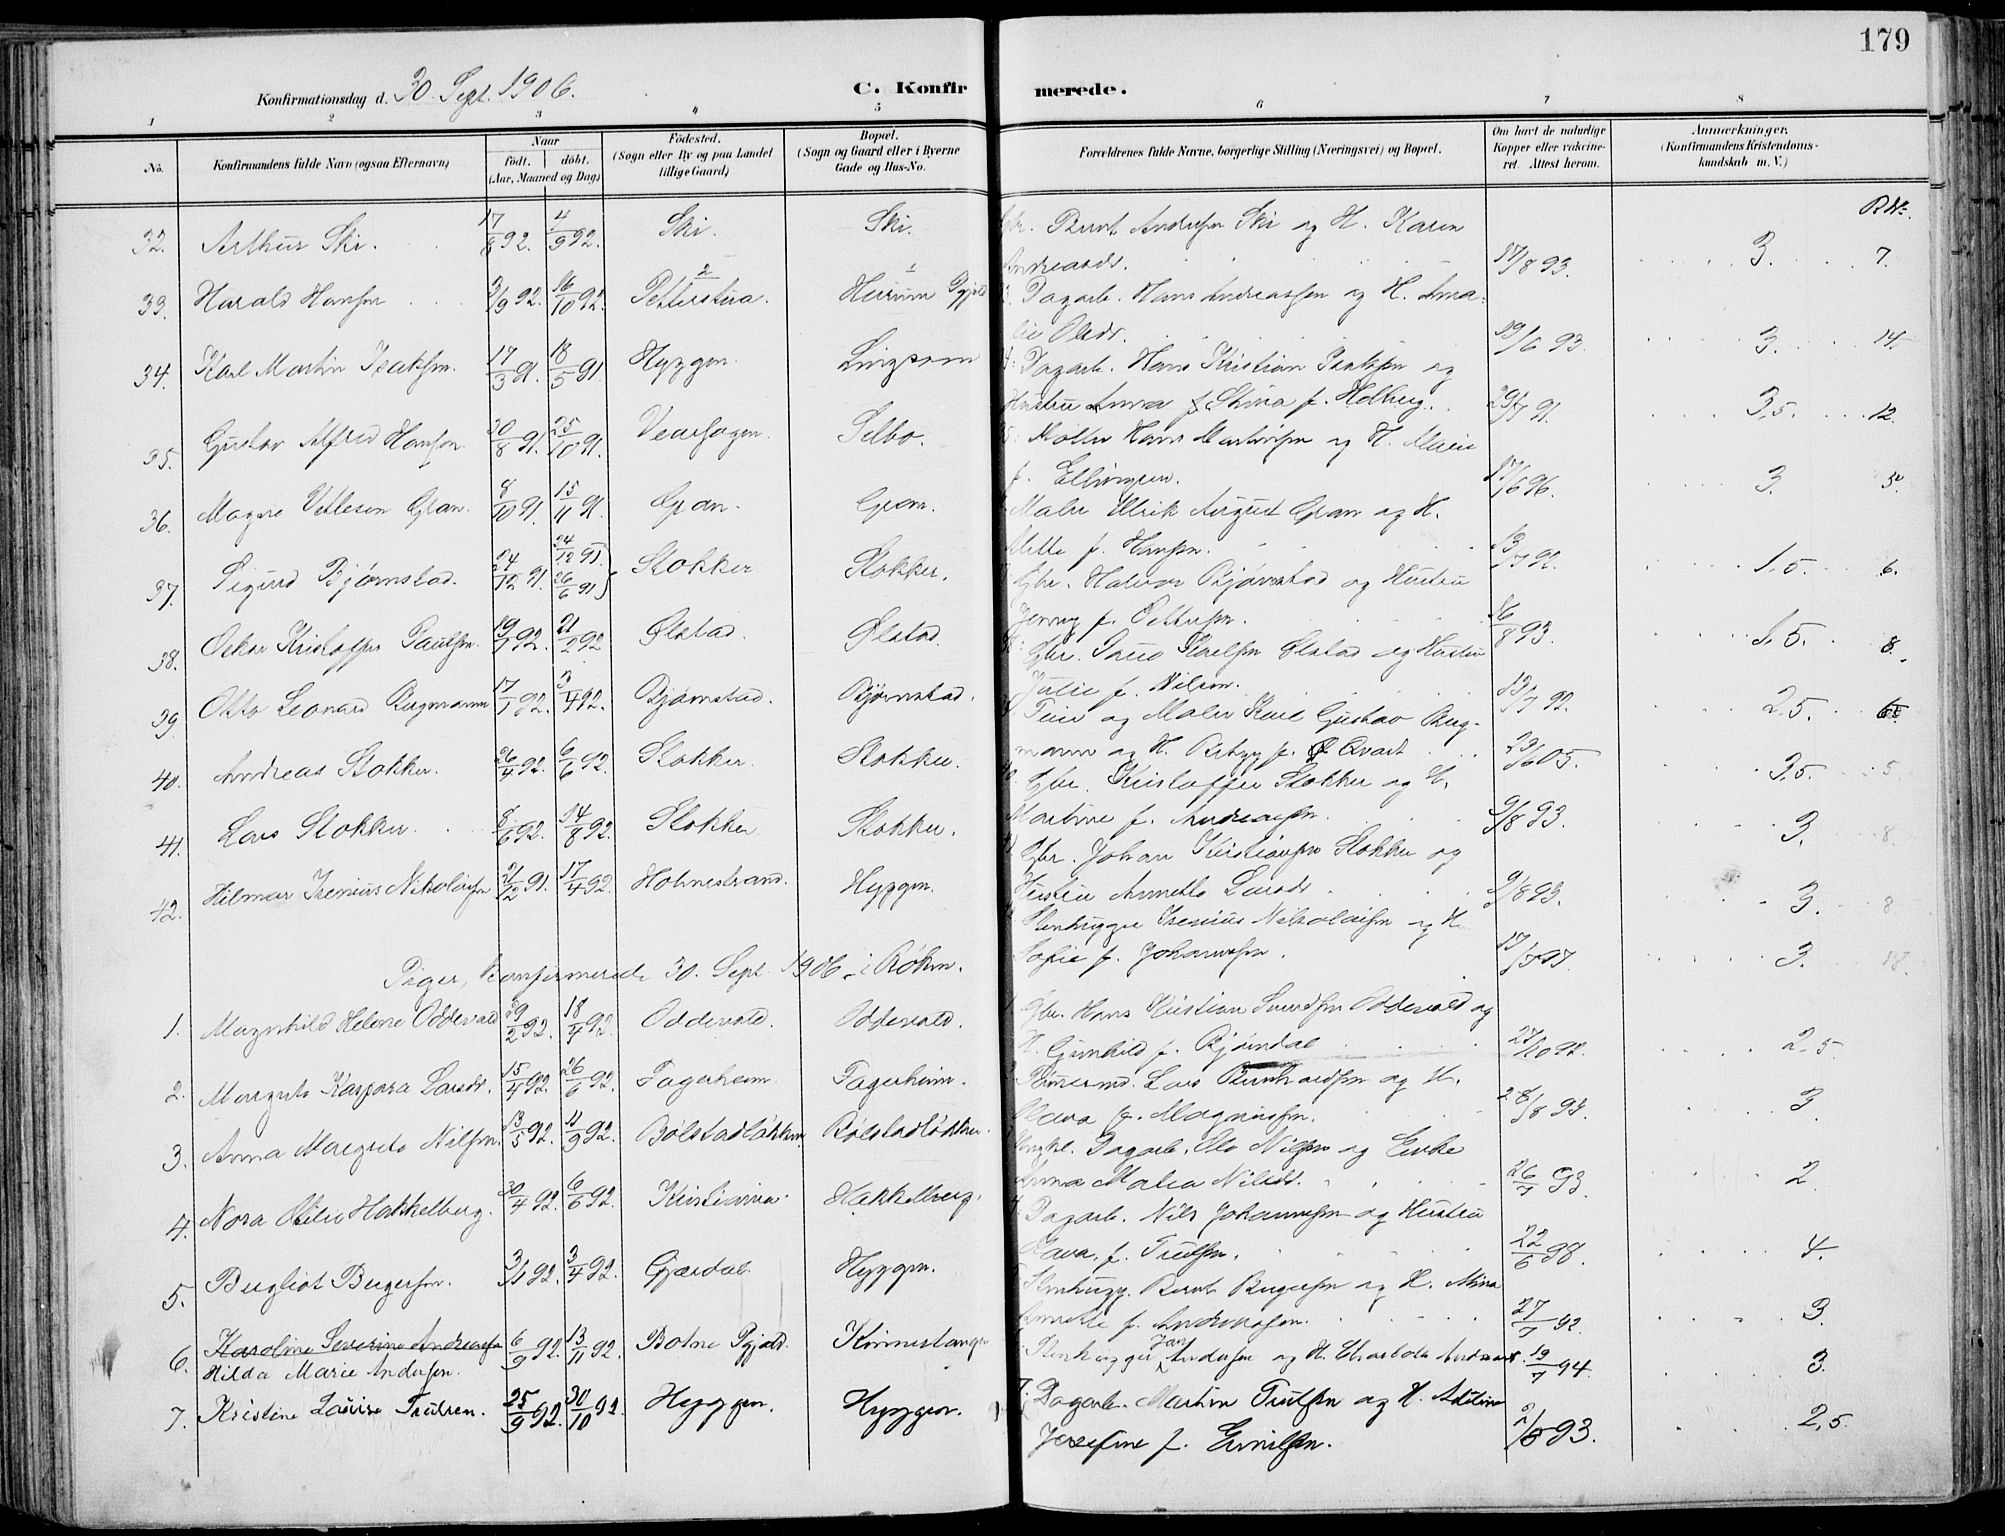 179
Konfirmationsdag d. 30. Sept. 1906.
C. Konfirmerede.
1 2 3 4 5 6 7 8
No.
Konfirmandens fulde Navn (ogsaa Efternavn)
Naar
født. døbt.
(Aar, Maaned og Dag)
Fødested.
(Sogn eller By og paa Landet
tillige Gaard)
Bopæl.
(Sogn og Gaard eller i Byerne
Gade og Hus-No.
Forældrenes fulde Navne, borgerlige Stilling (Næringsvei) og Bopæl.
Om havt de naturlige
Kopper eller vakcine-
ret. Attest herom.
Anmærkninger.
(Konfirmandens Kristendoms-
kundskab m. V.)
32. Arthur Ski. 17/8 92. 4/9 92. Ski. Ski. Gbr. Bernt Andersen Ski og H. Karen
Andreasdr. 17/8 93. 3. 7.
33. Harald Hansen 2/9 92. 16/10 92. Pettersbraa. Hurum Pgjeld Dagarb. Hans Andreassen og H. Ama-
lie Olsdr. 19/6 93. 3. 14.
34. Karl Martin Isaksen. 17/3 91. 18/5 91. Hyggen. Lingsom Dagarb. Hans Kristian Isaksen og
Hustru Anna Stina f. Holberg. 29/7 91. 3,5. 12.
35. Gustav Alfred Hansen 30/8 91. 25/10 91. Selbo. Hans Martinsen og H. Marie
f. Ellingsen. 17/6 96. 3. 5.
36. Magne Vetlesen Gran. 8/10 91. 15/11 91. Gran. Gran. Maler Ulrik August Gran og H.
Mette f. Hansen. 13/7 92. 1,5. 6.
37. Sigurd Bjørnstad. 24/12 91. 24/12 91. 26/6 91 Stokker Stokker. Gbr. Halvor Bjørnstad og Hustru
Jenny f. Pettersen. 16/8 93. 1,5. 8.
38. Oskar Kristoffer Paulsen. 19/1 92. 21/2 92 Ølstad. Ølstad. Gbr. Ølstad og Hustru
Julie f. Nilsen. 13/7 92. 2,5.
39. Otto Leonard Bergmann 17/1 92. 3/4 92. Bjørnstad. Bjørnstad. og Maler Karl Gustav Berg-
mann og H. Betzy f. Qvart 23/6 05. 3,5. 5
40. Andreas Stokker. 26/4 92. 6/6 92. Stokker. Stokker. Gbr. Kristoffer Stokker og H.
Martine f. Andreassen. 9/8 93. 3. 8.
41. Lars Stokker. 8/6 92. 14/8 92. Stokker Stokker. Gbr. Johan Kristiansen Stokker og
Hustru Annette Larsdr. 9/8 93. 3. 8
42. Hilmar Irenius Nikolaisen 21/12 91. 17/4 92. Holmestrand. Hyggen. Stenhugger Irenius Nikolaisen og H.
Sofie f. Johannesen. 17/5 97. 3. 18.
Piger, Konfirmerede 30. Sept. 1906 i Røken.
1. Magnhild Helene Oddevald 29/2 92. 18/4 92. Oddevald. Oddevald. Gbr. Hans Kristian Svendsen Oddevald og
H. Gunhild f. Bjørndal 27/10 92. 2,5.
2. Margrete Kaspara Larsdr. 15/4 92. 26/6 92. Fagerheim Fagerheim. Tømmermd. Lars Bernhardsen og H.
Olava f. Magnussen. 28/8 93. 3.
3. Anna Margrete Nilsen. 13/5 92. 11/9 92. Bølstadløkken Bølstadløkken. Dagarb. Ole Nilsen og Enke
Anna Malea Nilsdr. 26/7 93. 2.
4. Nora Otilie Hakkelberg. 30/4 92. 6/6 92. Kristiania. Hakkelberg. Dagarb. Nils Johannesen og Hustru
Lava f. Trulsen. 22/6 98. 4.
5. Bergliot Bergersen. 3/1 92. 3/4 92. Gjerdal. Hyggen. Stenhugg. Bernt Bergersen og H. Mina
Annette f. Andreassen. 27/7 92. 3.
6. Karoline Severine Andreasen
Hilda Marie Andersen. 6/9 92. 13/11 92. Botne Pgjeld. Kinnestangen Stenhugger Andersen og H. Charlotte Andreasdr. 19/7 94. 3.
7. Kristine Louise Trulsen. 25/9 92. 30/10 92. Hyggen. Hyggen. Dagarb. Martin Trulsen og H. Aditine
Josefine f. Emilsen. 93. 2,5.